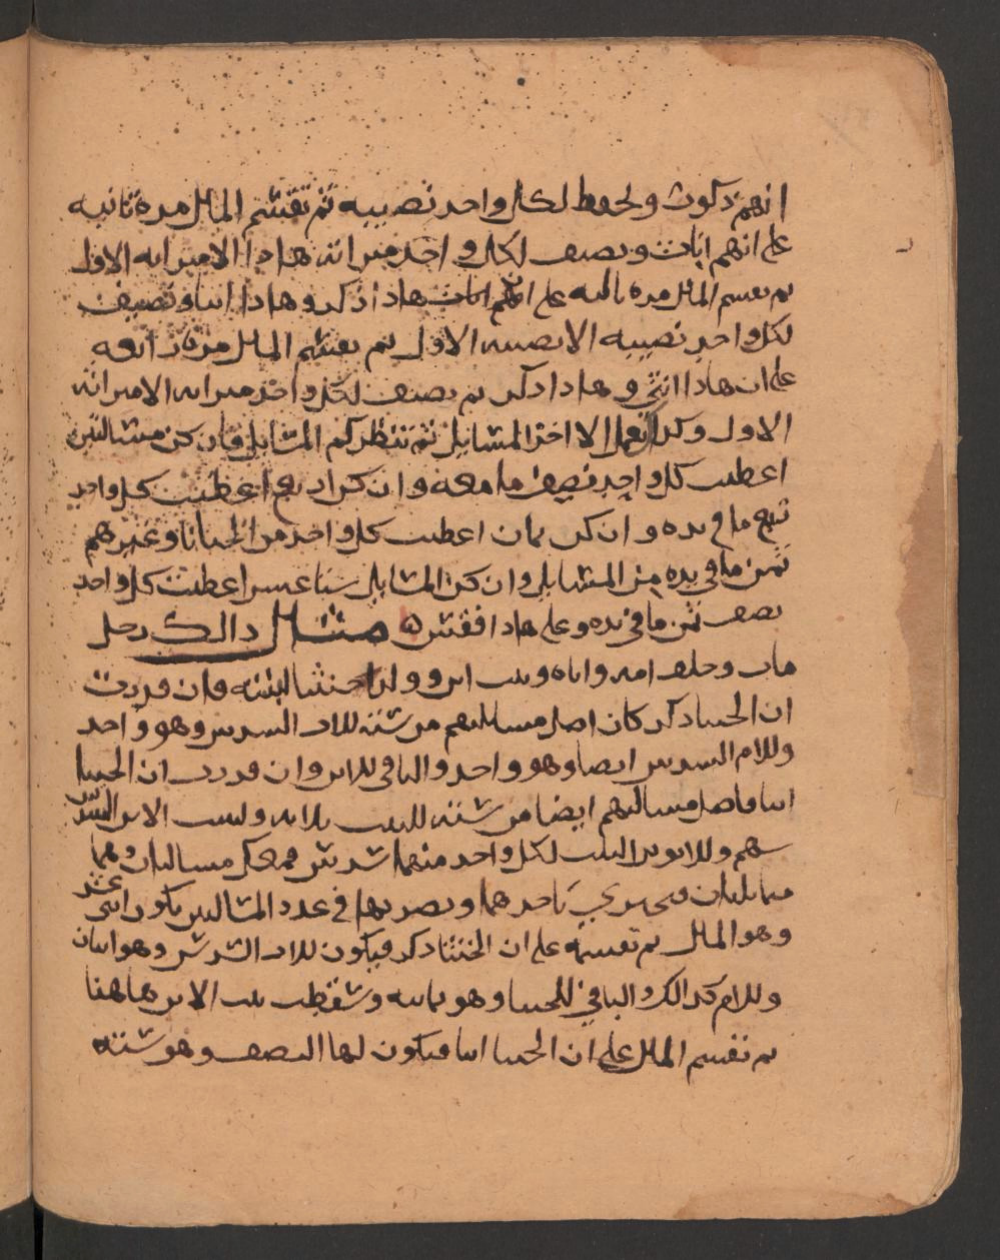 انهم ذكوث ولحفظ لكل واحد نصيبه ثم تقسم المال مرة ثانيه
على انهم اناث ويصف لكل واحد ميراثه هاذا الا ميراثه الاول
ثم تقسم المال مره ثالثه على انهم اناث هاذا ذكر وهاذا انثا وتصيف
لكل واحد نصيبه الا نصيبه الاول ثم تقسم المال مرة رابعه
على ان هاذا انثى وهاذا ذكر ثم يصف لكل واحد ميراثه الا ميراثه
الاول وكذا تعمل الا اخر المسايل ثم تنظر كم المسايل فان كن مسالتين
اعطيت كل واحد نصف ما معه وان كن اربع اعطيت كل واحد
ربع ما في يده وان كن ثمان اعطيت كل واحد من الخناثا وغيرهم
ثمن ما في يده من المسايل وان كن المسايل ستا عشر اعطيت كل واحد
نصف ثمن ما في يده وعلى هاذا فقس ه مثال ذالك رجل
مات وخلف امه واباه وبنت ابن وولدا خنثا لبنته فان قدرت
ان الخنثا ذكر كان اصل مسالتهم من سته للاب السدس وهو واحد
وللام السدس ايضا وهو واحد والباقي للابن وان قدرت ان الخنثا
انثا فاصل مسالتهم ايضا من سته للبنت ثلاثه ولبنت الابن السدس
سهم وللابوين الثلث لكل واحد منهما سدس فمعك مسالتان وهما
متماثلتان فتجتزي باحدهما وتضربها في عدد المسالتين يكون اثنى عشر
وهو المال ثم تقسمه على ان الخنثا ذكر فيكون للاب السدس وهو اثنان
وللام كذالك والباقي للخنثا وهو ثمانيه وسقطت بنت الابن هاهنا
ثم تقسم المال على ان الخنثا انثا فيكون لها النصف وهو سته